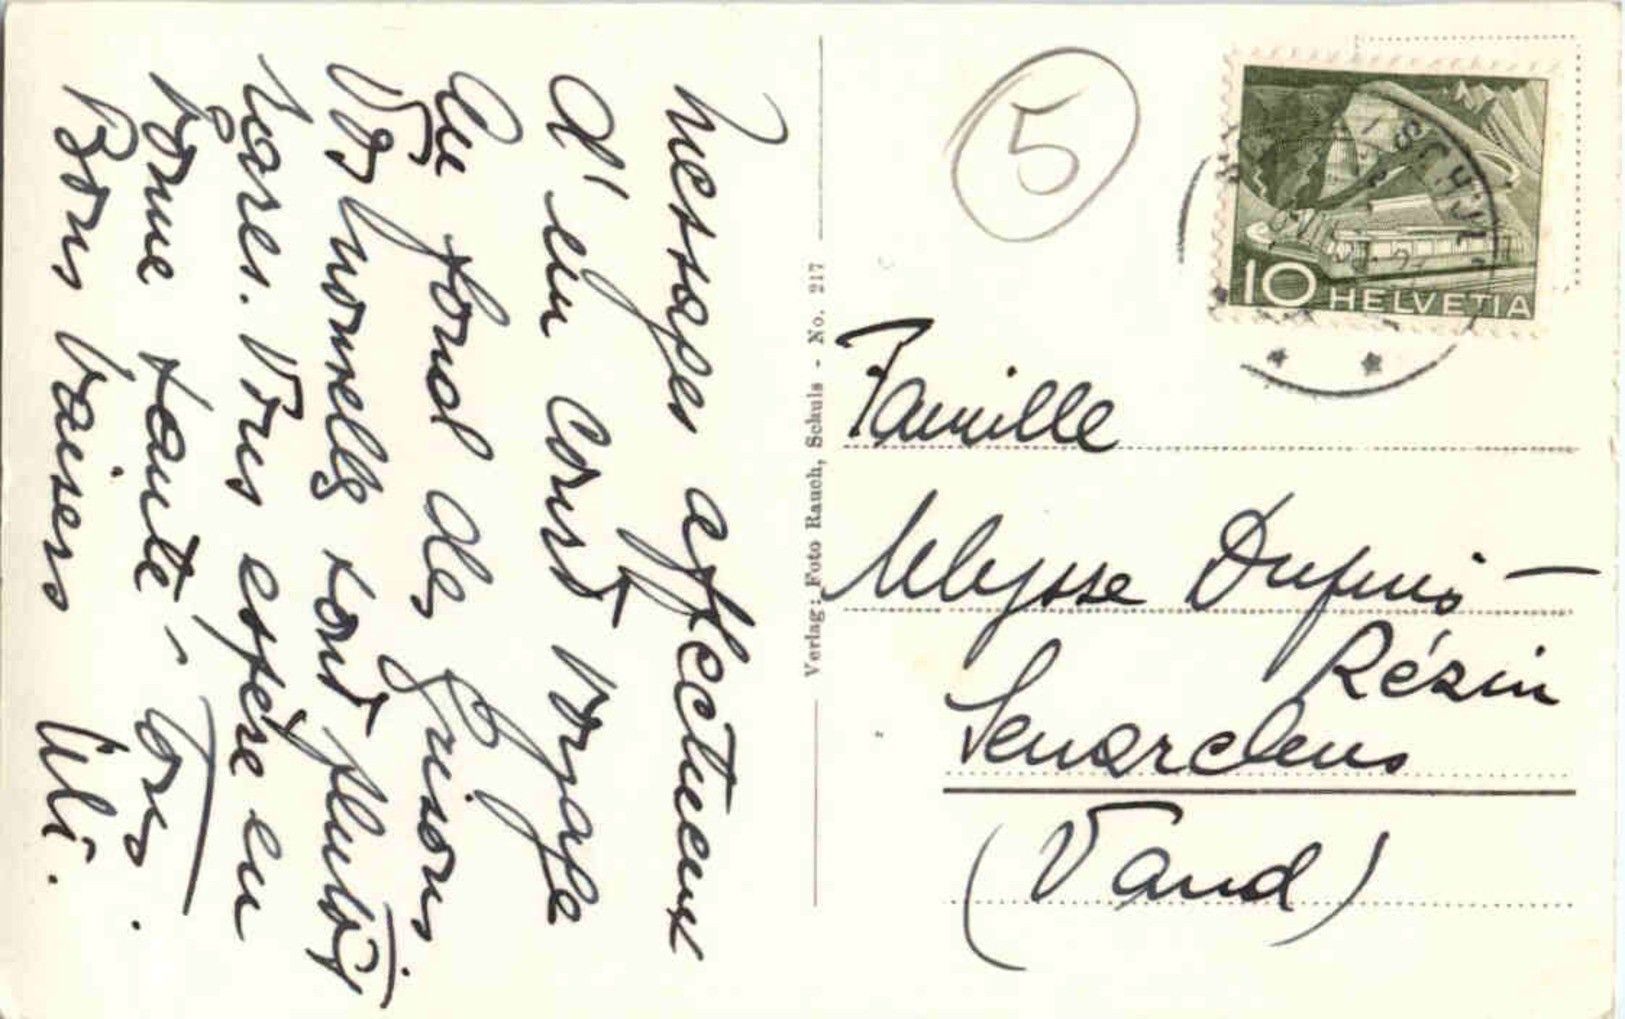 Messages affectueux
d'un court voyage
Au fond des grisons
Vos nouvelles sont plutôt
rares. Vous espère en
bonne santé - tous.
Bons baisers Uli.
Verlag: Foto Rauch, Schuls - No. 217
5
SCHULS
10 HELVETIA
Famille
Ulysse Dupuis -
Rézin
Senarclens
(Vaud)